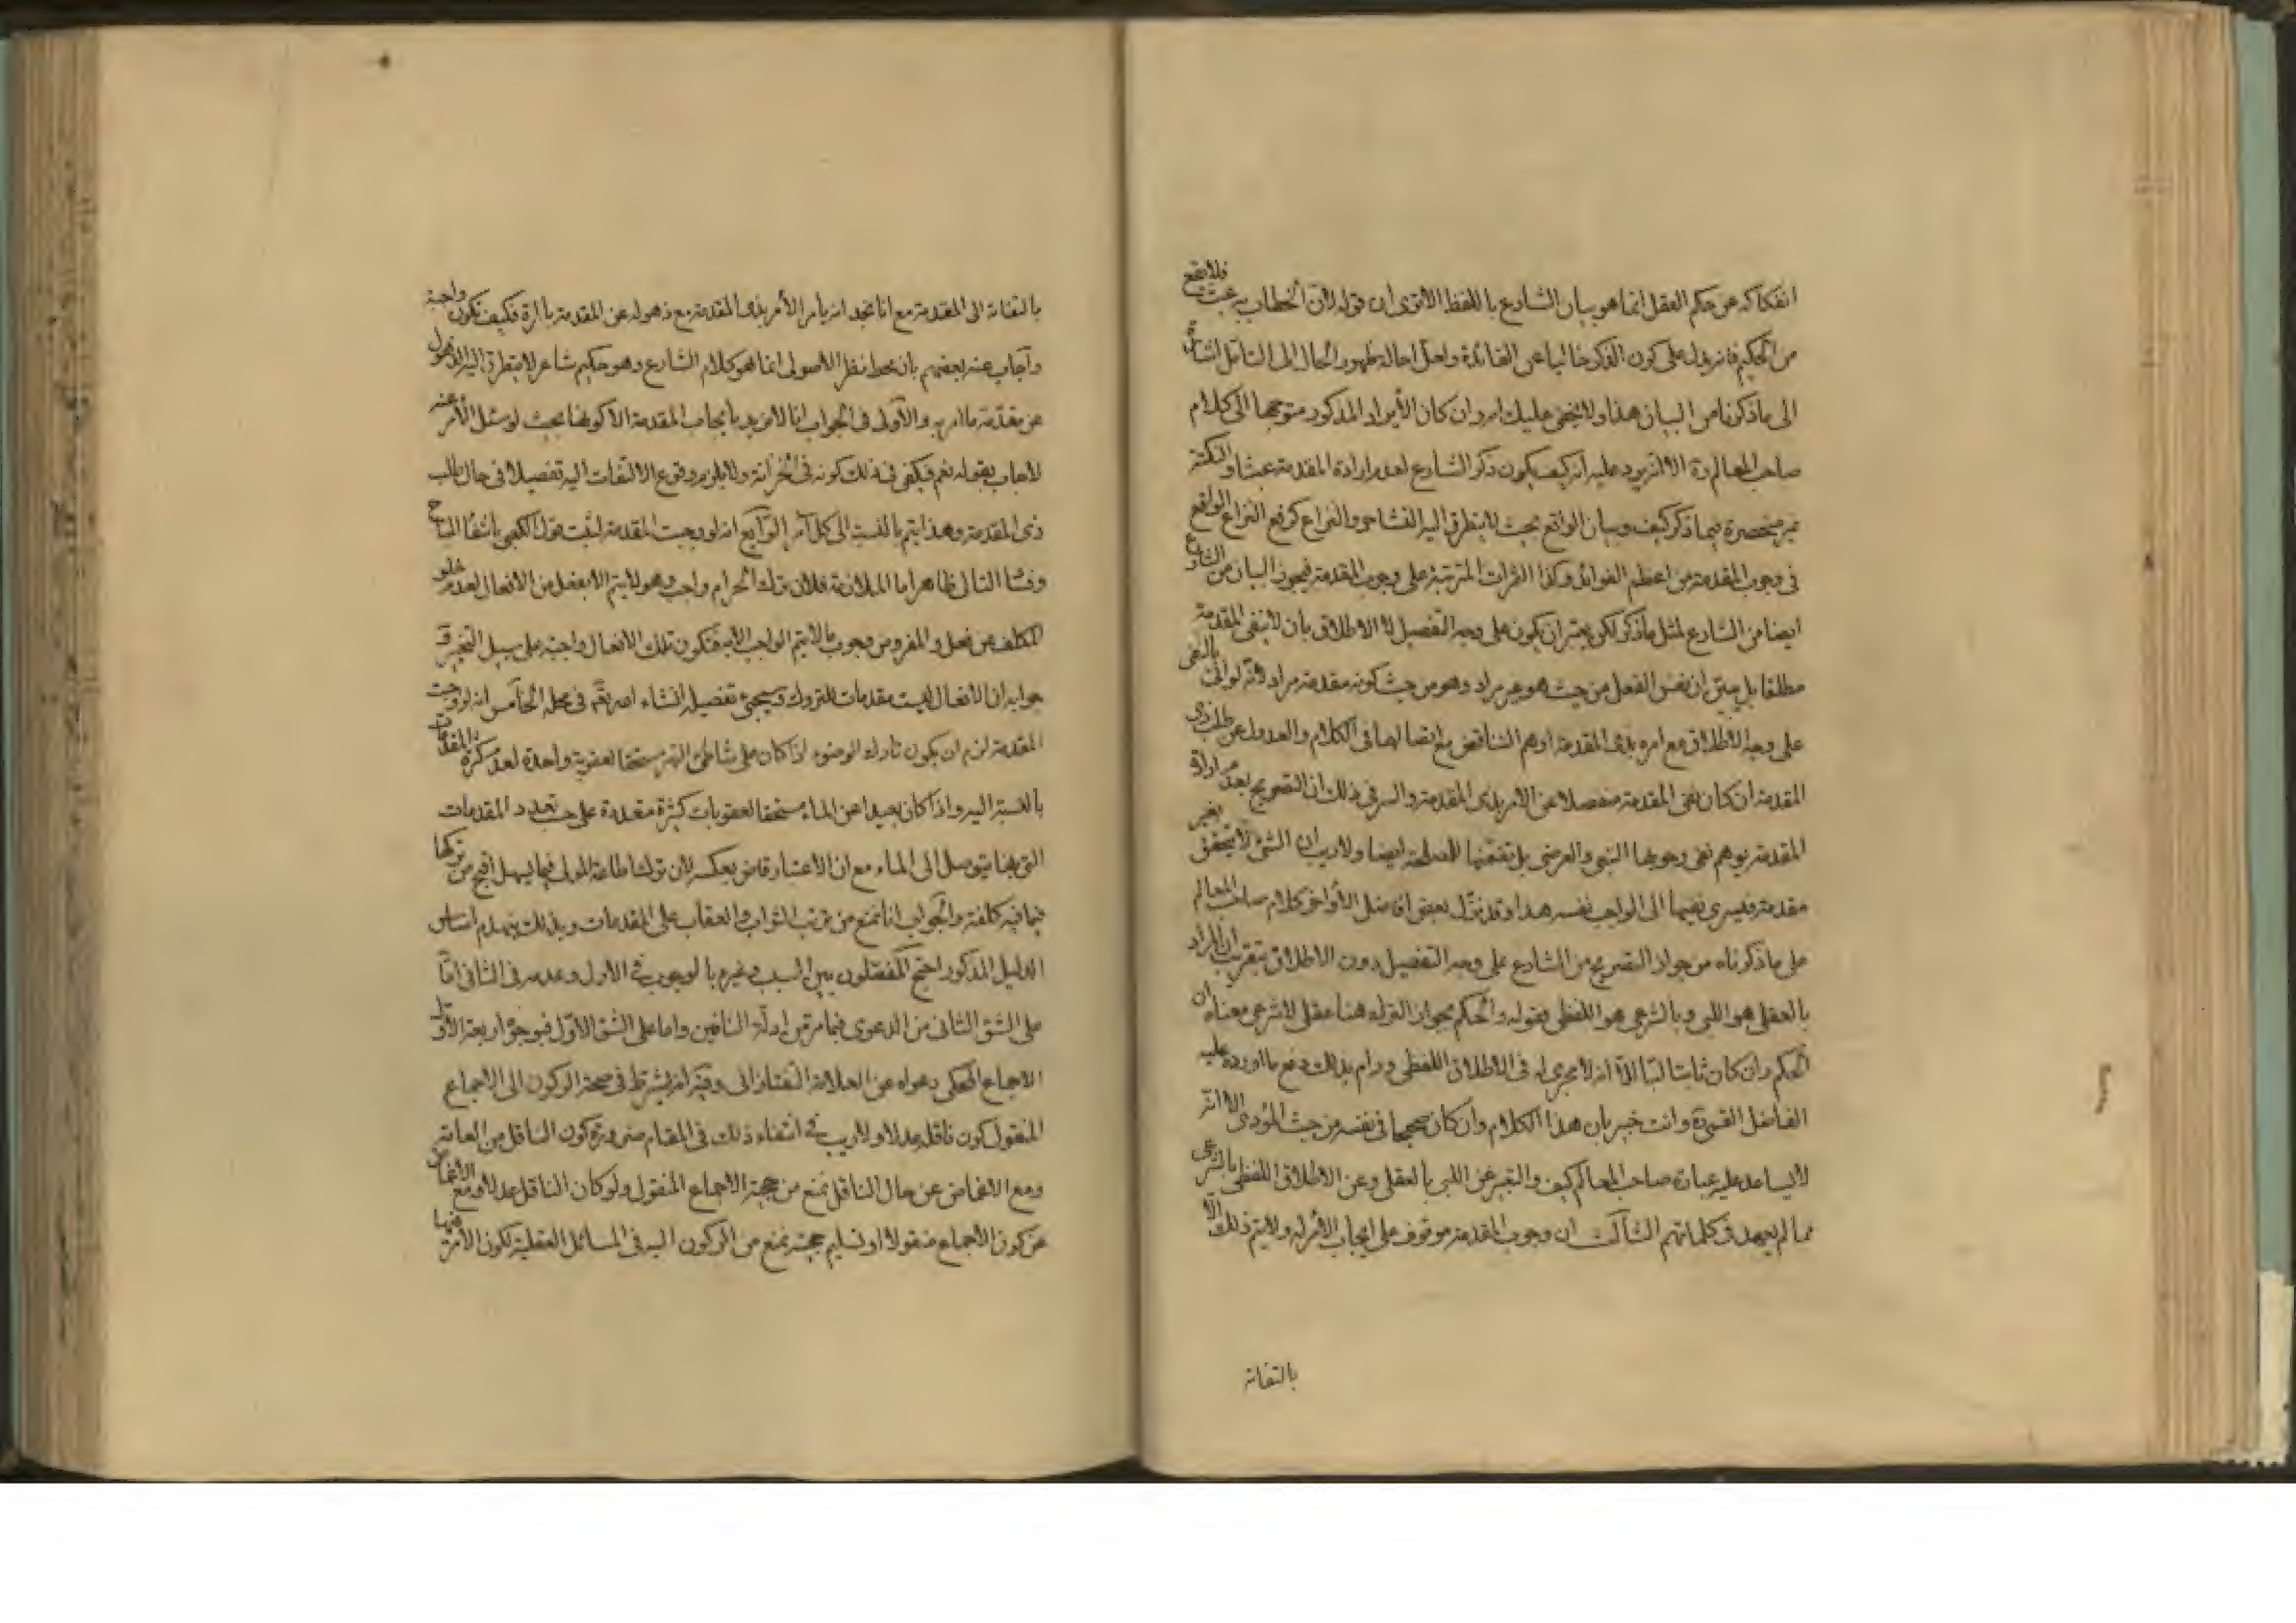 انفكاكه عن حكم العقل انما هو بيان الشارع باللفظ الا ترى ان قوله لان الخطاب به عبث فلا يقع
من الحكيم فانه يدل على كون الذكر خاليا عن الفائدة ولعل احاله ظهور الحال الى التأمل اشارة
الى ما ذكرنا من البيان هذا ولا يخفى عليك انه وان كان الأيراد المذكور متوجها الى كلام
صاحب المعالم ره الا انه يرد عليه انه كيف يكون ذكر الشارع لعدم ارادة المقدمة عبثا والنكتة
غير منحصرة فيما ذكر كيف وبيان الواقع بحيث لا يتطرق اليه التشاجر والنزاع كرفع النزاع الواقع
في وجوب المقدمة من اعظم الفوائد وكذا الثمرات المترتبة على وجوب المقدمة فيجوز البيان من الشارع
ايضا من الشارع لمثل ما ذكر لكن يعتبر ان يكون على وجه التفصيل لا الاطلاق بان لا ينفى المقدمة
مطلقا بل يبين ان نفس الفعل من حيث هو غير مراد وهو من حيث كونه مقدمة مراد لانه لو اتى بالنفى
على وجه الاطلاق مع امره بذى المقدمة اوهم التناقض مع اتصالهما في الكلام والعدول عن طلب ذى
المقدمة ان كان نفى المقدمة منفصلا عن الامر بذى المقدمة والسر في ذلك ان التصريح بعدم ارادة
المقدمة يوهم نفى وجوبها التبعى والعرضى بل نفيها للمصلحة ايضا ولا ريب ان الشئ لا يتحقق بغير
مقدمة فيسرى نفيها الى الواجب نفسه هذا وقد نزل بعض افاضل الأواخر كلام صاحب المعالم
على ما ذكرناه من جواز التصريح من الشارع على وجه التفصيل دون الاطلاق بتقريب ان المراد
بالعقلى هو اللبى وبالشرعى هو اللفظى فقوله والحكم بجواز الترك هنا عقلى لا شرعى معناه ان
الحكم وان كان ثابتا لبا الا انه لا مجرى له فى الاطلاق اللفظى ورام بذلك دفع ما اورده عليه
الفاضل القمى ره وانت خبير بان هذا الكلام وان كان صحيحا فى نفسه من حيث المؤدى الا انه
لا يساعد عليه عبارة صاحب المعالم كيف والتعبير عن اللبى بالعقلى وعن الاطلاق اللفظى بالشرعى
مما لم يعهد فى كلماتهم الثالث ان وجوب المقدمة موقوف على ايجاب الأمر له ولا يتم ذلك الا
بالتفاته
بالتفاته الى المقدمة مع انا نجد انه يامر الأمر بذى المقدمة مع ذهوله عن المقدمة بالمرة فكيف تكون واجبة
واجاب عنه بعضهم بان محط نظر الاصولى انما هو كلام الشارع وهو حكيم شاعر لا يتطرق اليه الذهول
عن مقدمة ما امر به والأولى فى الجواب انا لا نريد بايجاب المقدمة الا كونها بحيث لو سئل الأمر عنه
لاجاب بقوله نعم ويكفى فى ذلك كونه فى الخزانة ولا يلزم وقوع الالتفات اليه تفصيلا فى حال طلب
ذى المقدمة وهذا يتم بالنسبة الى كل آمر الرابع انه لو وجبت المقدمة لثبت قول الكعبى بانتفاء المباح
وفساد التالى ظاهر اما الملازمة فلان ترك الحرام واجب وهو لا يتم الا بفعل من الافعال لعدم خلو
المكلف عن فعل والمفروض وجوب ما لا يتم الواجب الا به فتكون تلك الافعال واجبة على سبيل التخيير و
جوابه ان الافعال ليست مقدمات للتروك وسيجئ تفصيله انشاء الله تعالى فى محله الخامس انه لو وجبت
المقدمة لزم ان يكون تارك الوضوء اذا كان على شاطئ النهر مستحقا لعقوبة واحدة لعدم كثرة المقدمات
بالنسبة اليه واذا كان بعيدا عن الماء مستحقا لعقوبات كثيرة متعددة على حسب تعدد المقدمات
التى بها يتوصل الى الماء مع ان الاعتبار قاض بعكسه لان ترك اطاعة المولى فيما يسهل اقبح من تركها
فيما فيه كلفة والجواب انا نمنع من ترتب الثواب والعقاب على المقدمات وبذلك ينهدم اساس
الدليل المذكور احتج المفصلون بين السبب وغيره بالوجوب فى الاول وعدمه فى الثانى اما
على الشق الثانى من الدعوى فبما مر من ادلة النافين واما على الشق الاول فبوجوه اربعة الأول
الاجماع المحكى دعواه عن العلامة التفتازانى وفيه انه يشترط فى صحة الركون الى الاجماع
المنقول كون ناقله عدلا ولا ريب فى انتفاء ذلك فى المقام ضرورة كون الناقل من العامة
ومع الاغماض عن حال الناقل نمنع من حجية الأجماع المنقول ولو كان الناقل عدلا ومع الاغماض
عن كون الأجماع منقولا او تسليم حجيته نمنع من الركون اليه فى المسائل العقلية لكون الأمر فيها